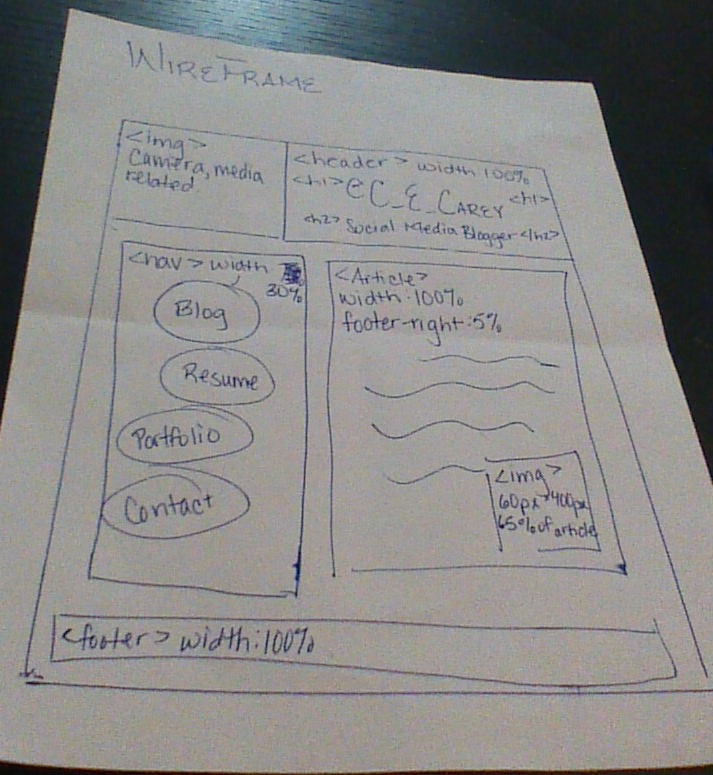 WIREFRAME
<img>
Camera, media
related
<header> width 100%
<h1> @C_E_CAREY <h1>
<h2> Social Media Blogger </h2>
<nav> width
30%
Blog
Resume
Portfolio
Contact
<Article>
width: 100%
footer-right: 5%
<img>
60px > 400px
65% of article
<footer> width: 100%